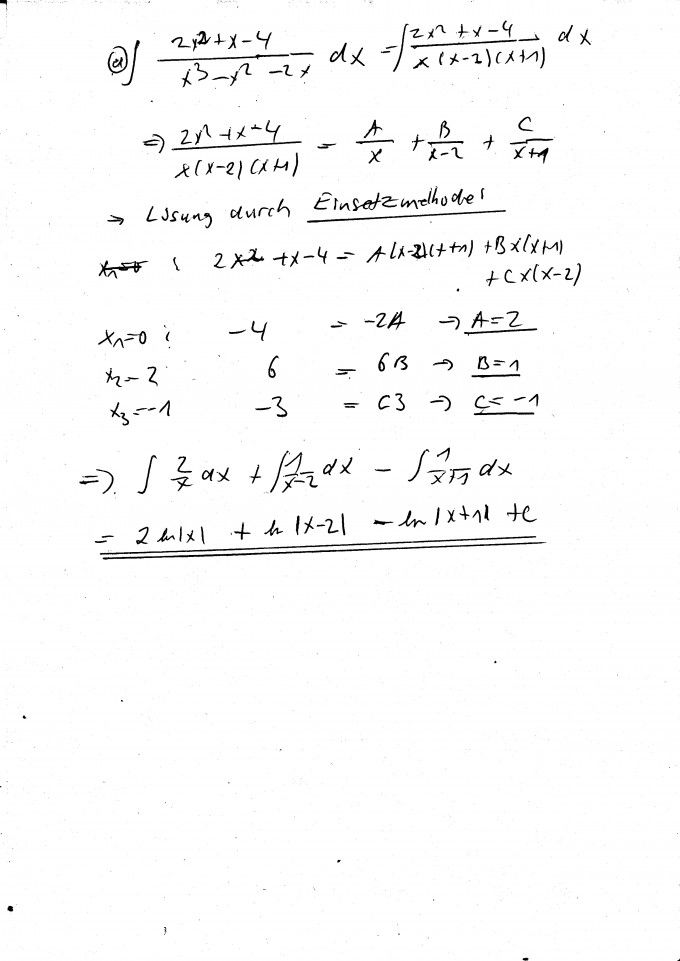 a) ∫ (2x²+x-4)/(x³-x²-2x) dx = ∫ (2x²+x-4)/(x(x-2)(x+1)) dx
⇒ (2x²+x-4)/(x(x-2)(x+1)) = A/x + B/(x-2) + C/(x+1)
→ Lösung durch Einsetzmethode!
2x²+x-4 = A(x-2)(x+1) + Bx(x+1)
+ Cx(x-2)
x₁=0 : -4 = -2A → A=2
x₂=2 6 = 6B → B=1
x₃=-1 -3 = C3 → C=-1
⇒ ∫ 2/x dx + ∫ 1/(x-2) dx - ∫ 1/(x+1) dx
= 2 ln|x| + ln|x-2| - ln|x+1| + C